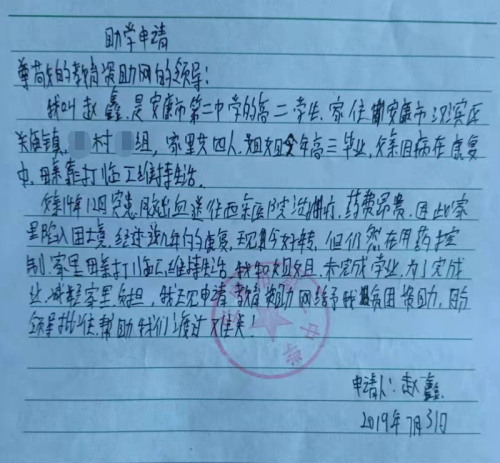 助学申请
尊敬的教育资助网的领导：
我叫赵鑫，是安康市第二中学的高二学生，家住安康市汉滨区
关庙镇，村组，家里共四人，姐姐今年高三毕业，父亲因病在康复
中，母亲靠打临工维持生活。
父亲14年12月突患脑出血送往西京医院治疗，药费昂贵，因此家
里陷入困境，经过近几年的康复，现今好转，但仍然在用药控
制，家里母亲打临工维持生活，我和姐姐且未完成学业，为了完成
业，减轻家里负担，我无申请教育资助网给予我贫困资助，盼
领导批准，帮助我们渡过难关！
申请人：赵鑫
2019年7月31日